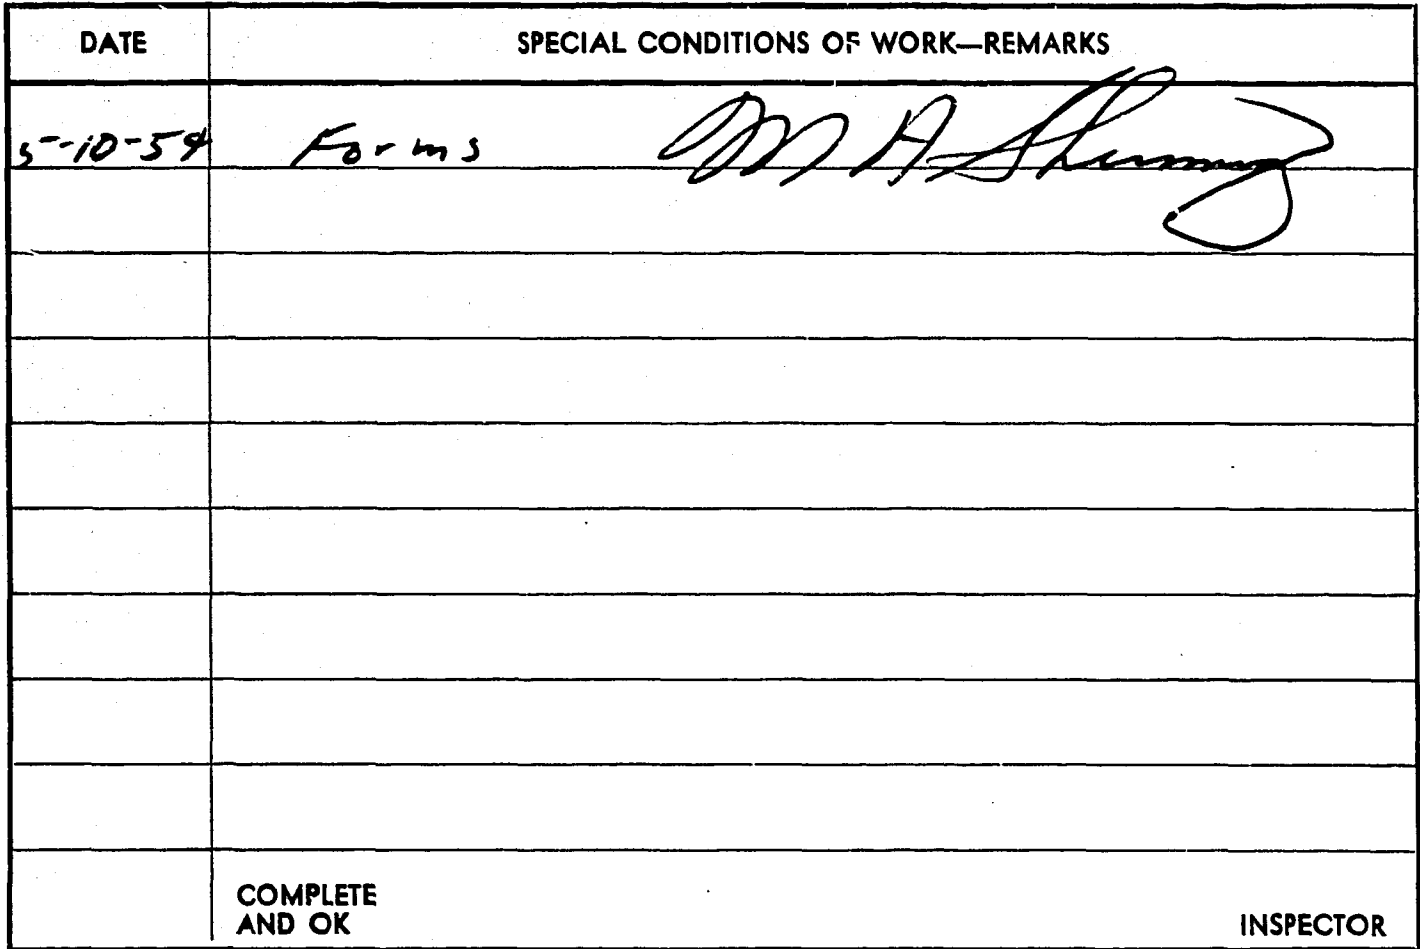 DATE SPECIAL CONDITIONS OF WORK—REMARKS
5-10-54 Forms M A
COMPLETE
AND OK INSPECTOR